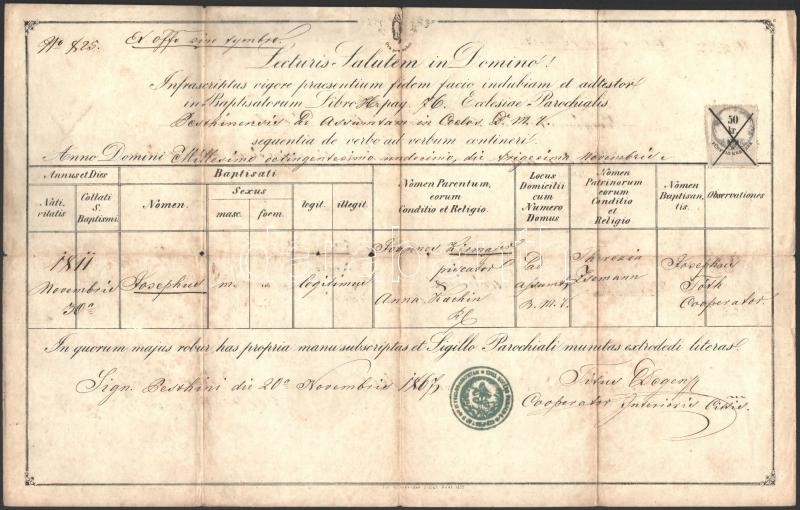 No 825.
Ex offo sine tymbro
Lecturis Salutem in Domino!
Infrascriptus vigore praesentium fidem facio indubiam et adtestor
in Baptisatorum Libro pag. Ecclesiae Parochialis
Pesthinensis ad Assumtam in Coelos B. M. V.
sequentia de verbo ad verbum contineri.
50
kr
Anno Domini Millesimo octingentesimo undecimo, die trigesima Novembris
Annus et Dies
Baptisati
Nati-
vitatis
Collati
S.
Baptismi.
Nomen.
Sexus
masc.
foem.
legit.
illegit.
Nomen Parentum,
eorum
Conditio et Religio.
Locus
Domicilii
cum
Numero
Domus
Nomen
Patrinorum
eorum
Conditio
et
Religio
Nomen
Baptisan-
tis.
Observationes
1811
Novembris
30a
Josephus
m.
"
legitimus
Joannes
piscator
Anna
ad
assumt.
B. M. V.
Theresia
Josephus
Tóth
Cooperator.
In quorum majus robur has propria manu subscriptas et Sigillo Parochiali munitas extradedi literas.
Sign. Pesthini die 20a Novembris 1867
Titus
Cooperator Interioris